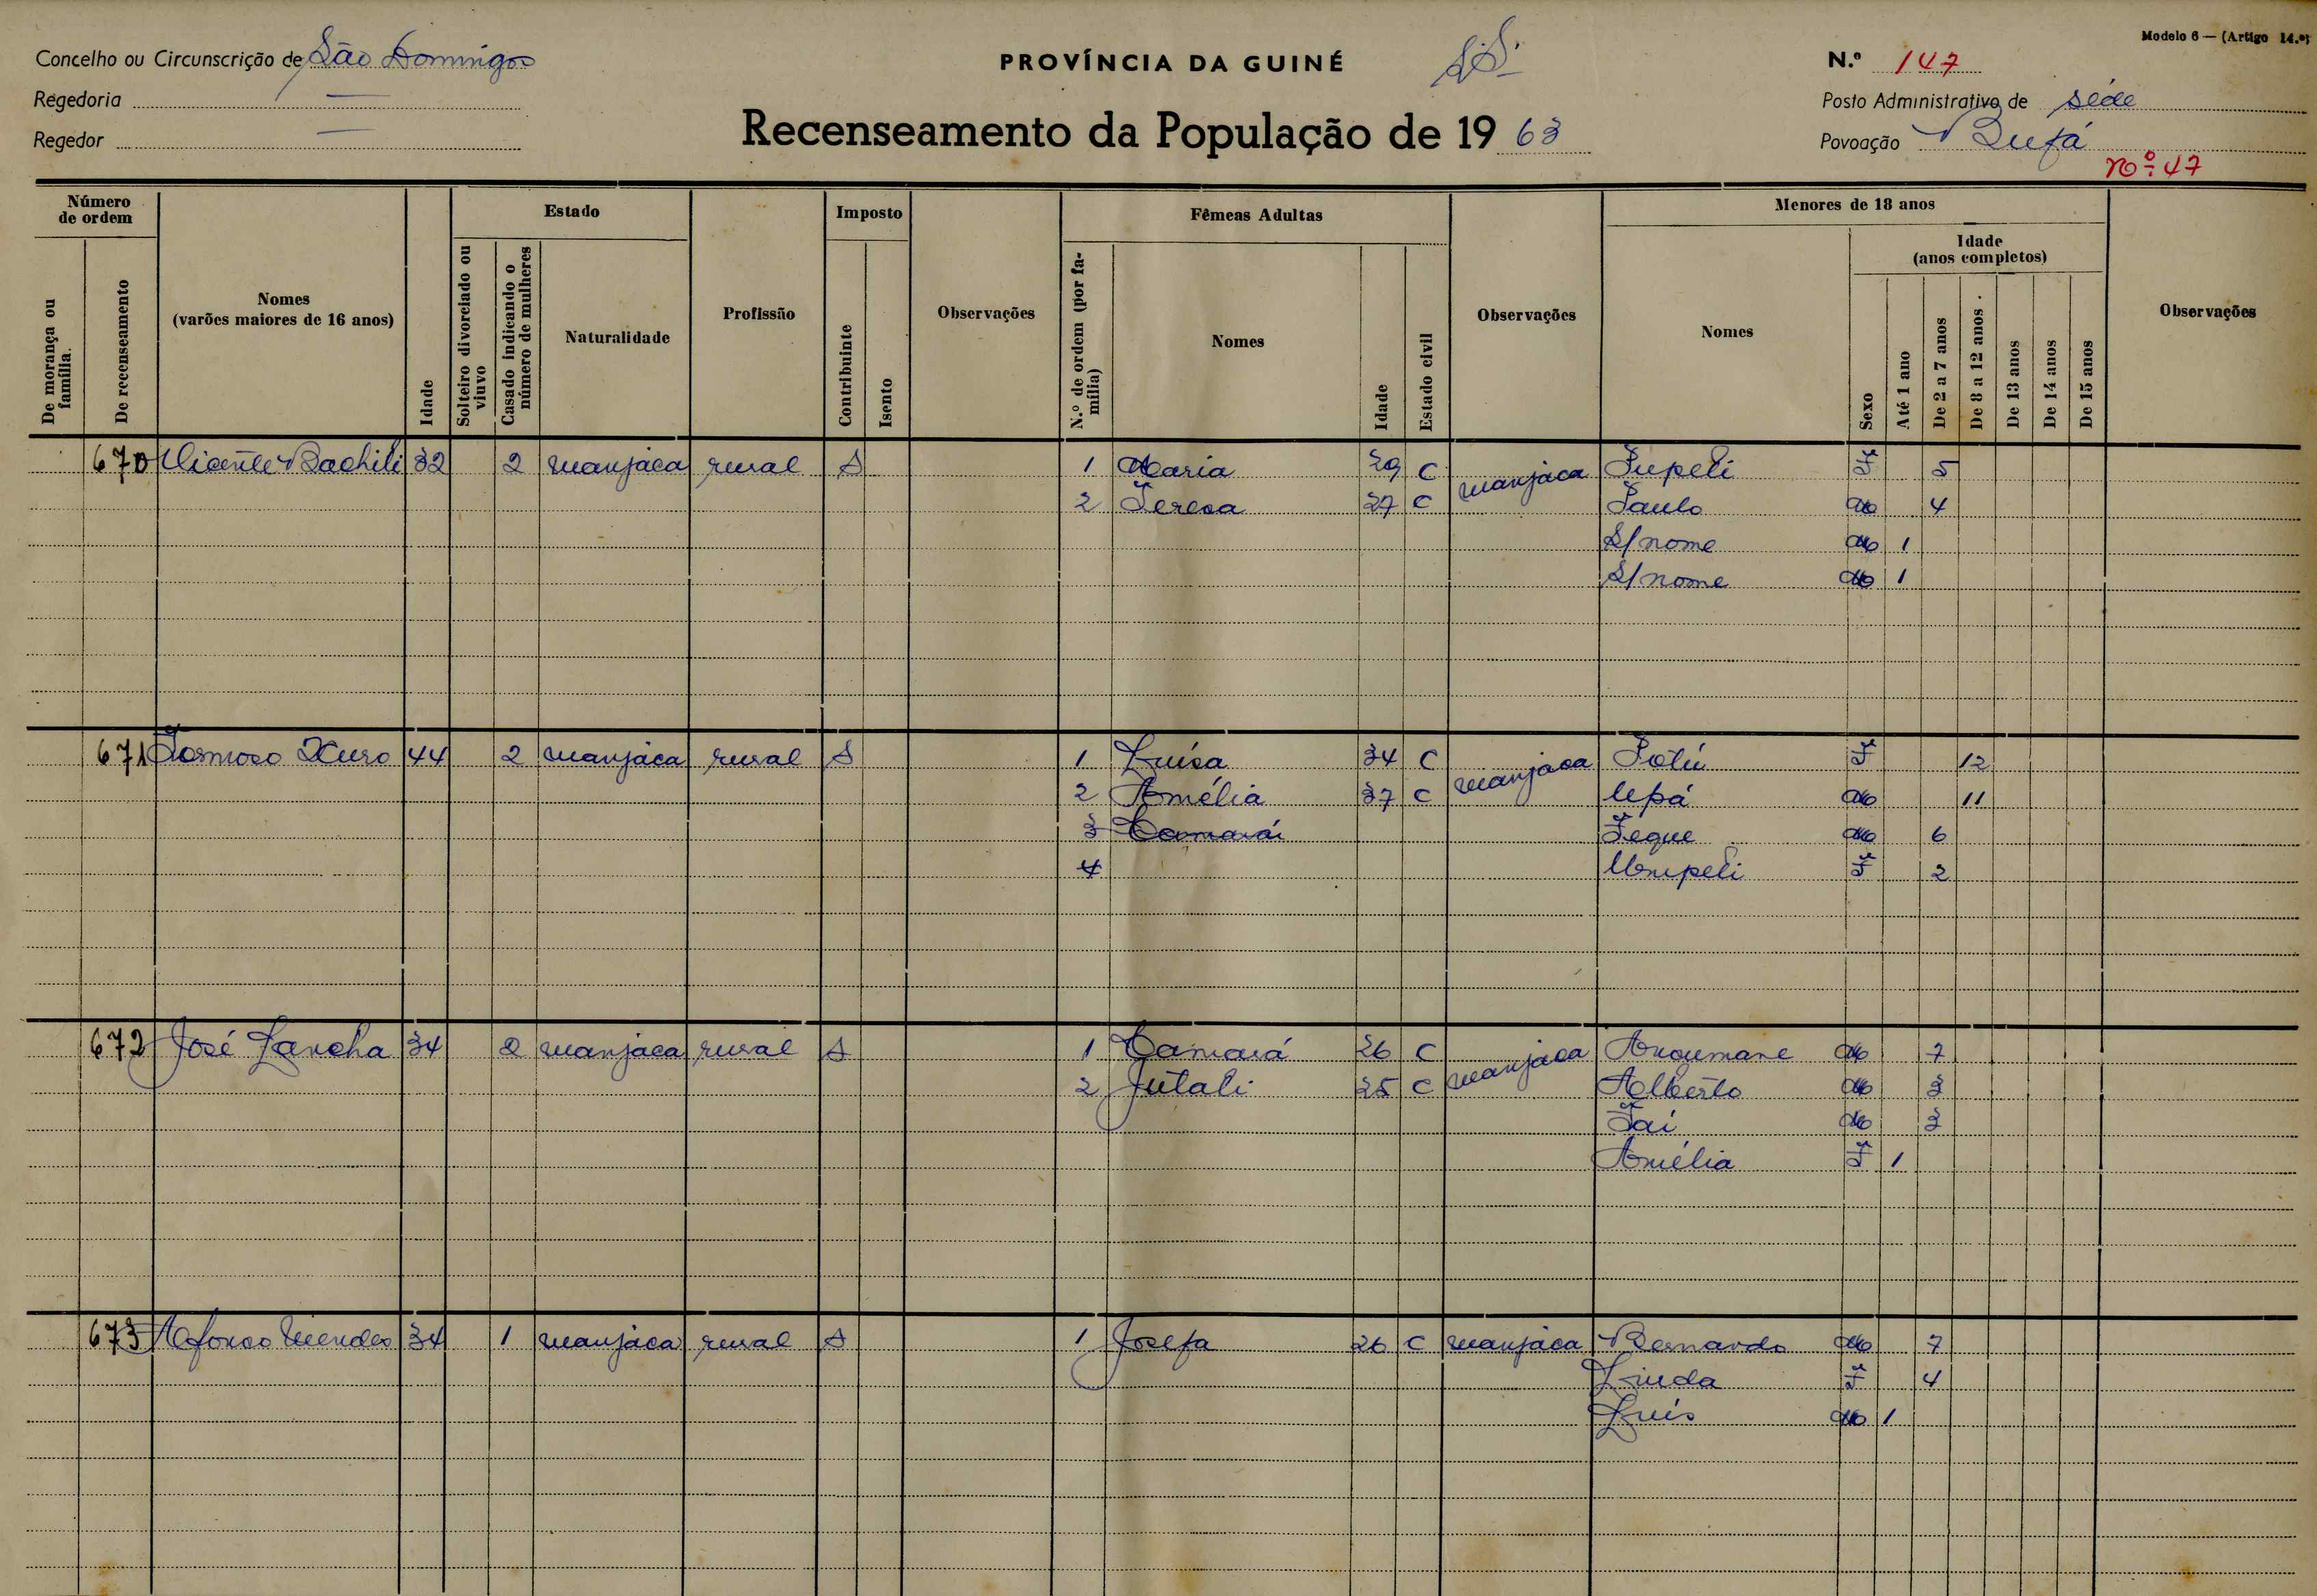 Modelo 6 — (Artigo 14.º)
Concelho ou Circunscrição de São Domingos
PROVÍNCIA DA GUINÉ
N.º 147
Regedoria —
Posto Administrativo de séde
Regedor —
Recenseamento da População de 1963
Povoação Bufá
Nº 47
Número de ordem
Estado
Imposto
Fêmeas Adultas
Menores de 18 anos
De morança ou família.
De recenseamento
Nomes (varões maiores de 16 anos)
Idade
Solteiro divorciado ou viuvo
Casado indicando o número de mulheres
Naturalidade
Profissão
Contribuinte
Isento
Observações
N.º de ordem (por família)
Nomes
Idade
Estado civil
Observações
Nomes
Idade (anos completos)
Sexo
Até 1 ano
De 2 a 7 anos
De 8 a 12 anos
De 13 anos
De 14 anos
De 15 anos
Observações
670 Vicente Bachili 32 2 manjaca rural S 1 Maria 29 C manjaca Jupeli F 5
2 Teresa 27 C Paulo M 4
S/nome M 1
S/nome M 1
671 Formoso 44 2 manjaca rural S 1 Luísa 34 C manjaca F 12
2 Amélia 37 C Upá M 11
3 Camará Feque M 6
4 Umpeli F 2
672 José Lancha 34 2 manjaca rural S 1 Camará 26 C manjaca Angumane M 7
2 Jutali 25 C Alberto M 3
M 3
Amélia F 1
673 Afonso Mendes 34 1 manjaca rural S 1 Josefa 26 C manjaca Bernardo M 7
Linda F 4
Luís M 1